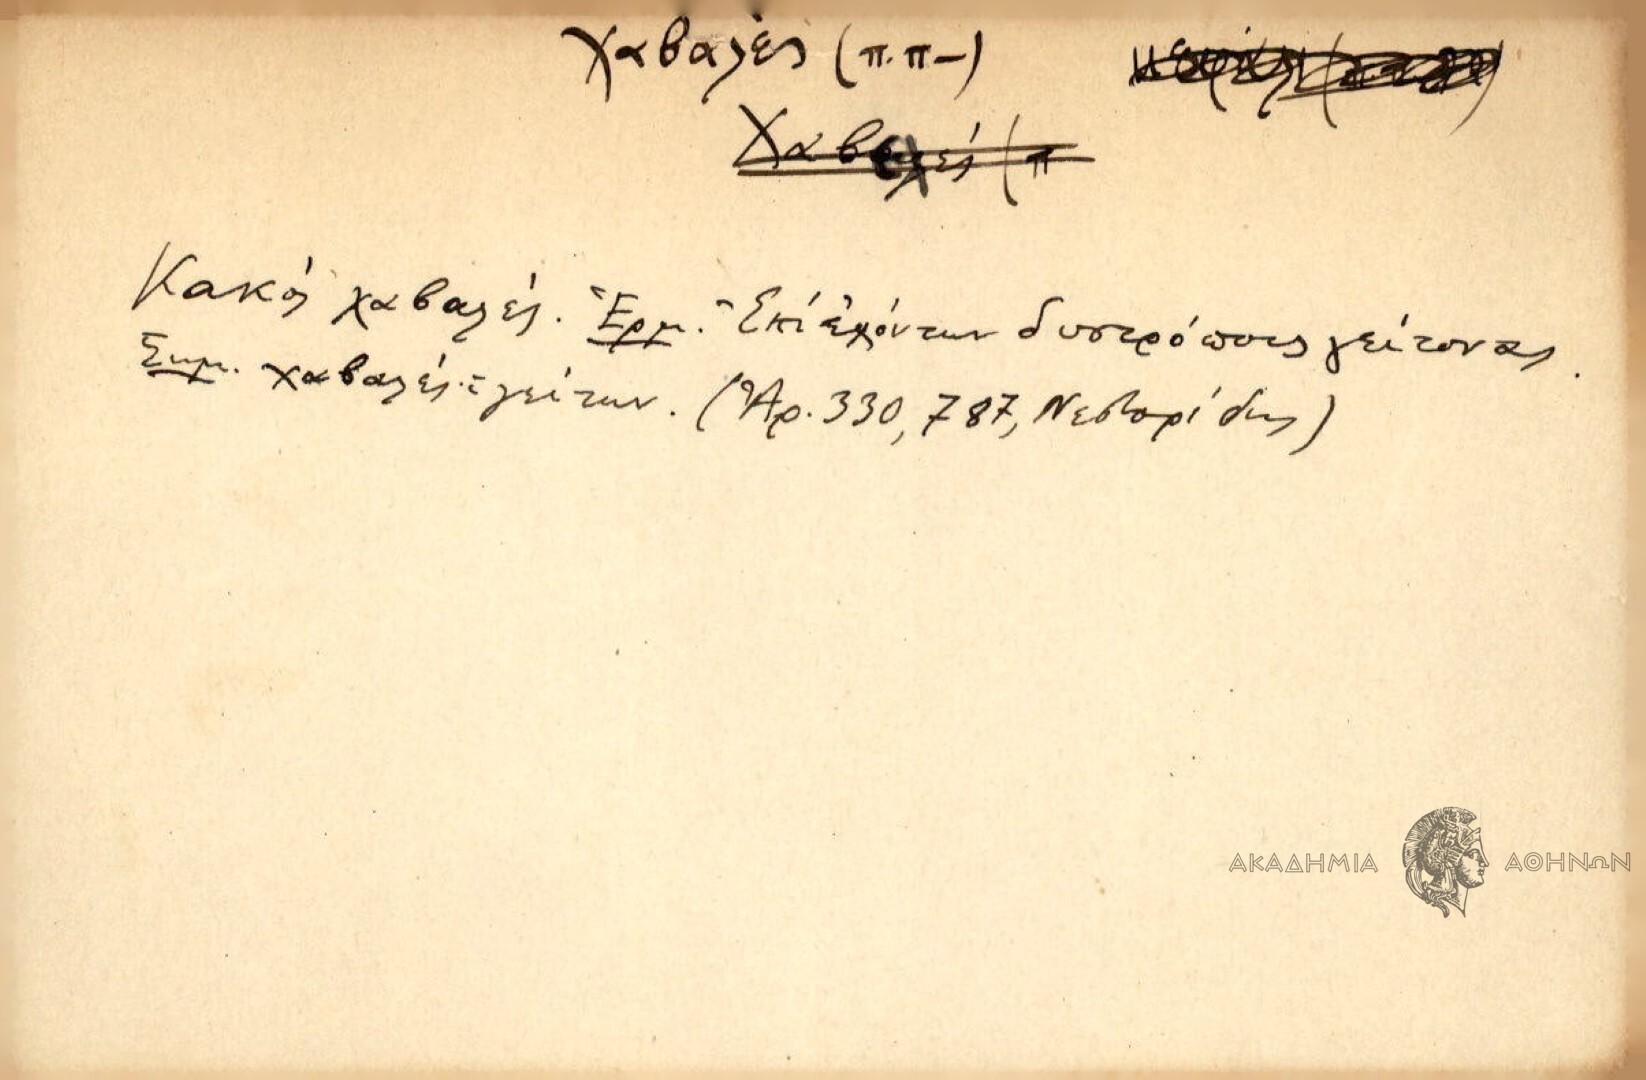 Χαβαλές (π.π-)
Χαβαλές (π
Κακός χαβαλές. Ἑρμ. Ἐπὶ ἐχόντων δυστρόπους γείτονας.
Σημ. χαβαλές = γείτων. (Ἀρ. 330, 787, Νεστορίδης)
ΑΚΑΔΗΜΙΑ ΑΘΗΝΩΝ